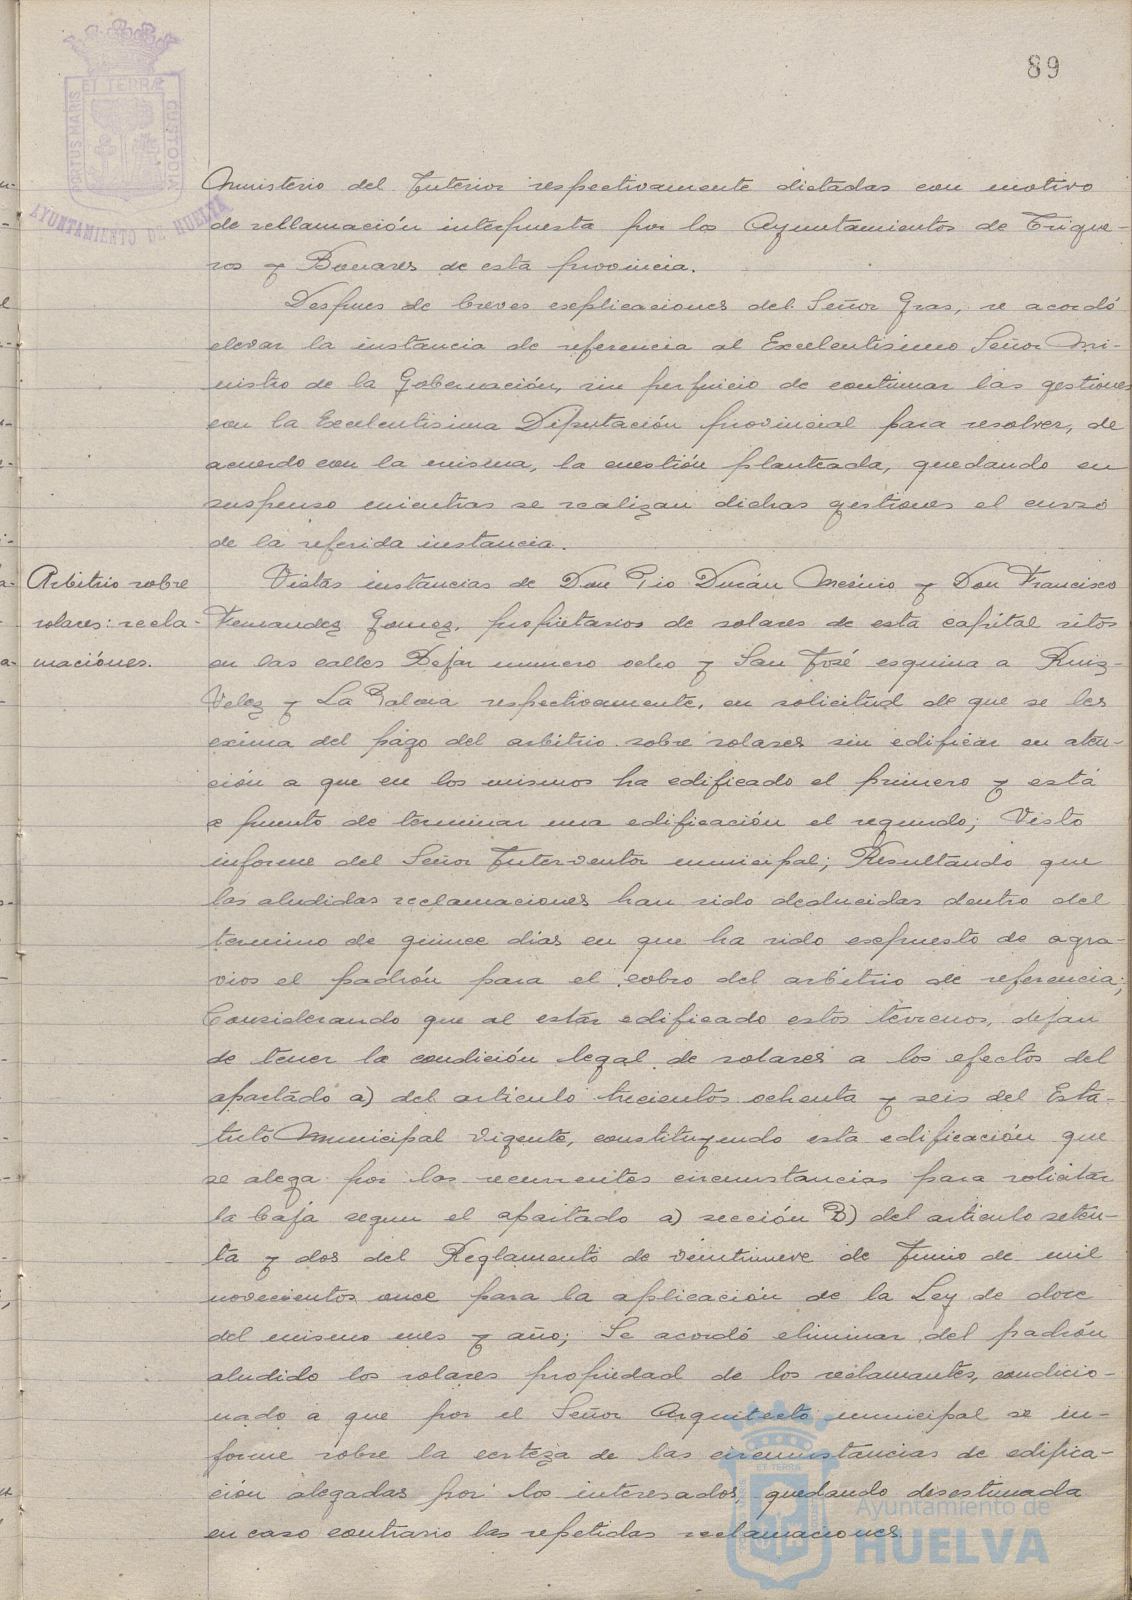 89
PORTUS MARIS ET TERRÆ CUSTODIA
AYUNTAMIENTO DE HUELVA
Ministerio del Interior respectivamente dictadas con motivo
de reclamación interpuesta por los Ayuntamientos de Trigue-
ros y Bonares de esta provincia.
Despues de breves explicaciones del Señor Gras, se acordó
elevar la instancia de referencia al Excelentisimo Señor Mi-
nistro de la Gobernación, sin perjuicio de continuar las gestiones
con la Excelentisima Diputación provincial para resolver, de
acuerdo con la misma, la cuestión planteada, quedando en
suspenso mientras se realizan dichas gestiones el curso
de la referida instancia.
Arbitrio sobre
solares: recla-
maciónes.
Vistas instancias de Don Pio Durán Merino y Don Francisco
Fernandez Gomez, propietarios de solares de esta capital sitos
en las calles Bejar numero ocho y San José esquina a Ruiz-
Velez y La Palma respectivamente, en solicitud de que se les
exima del pago del arbitrio sobre solares sin edificar en aten-
ción a que en los mismos ha edificado el primero y está
a punto de terminar una edificación el segundo; Visto
informe del Señor Interventor municipal; Resultando que
las aludidas reclamaciones han sido deducidas dentro del
termino de quince dias en que ha sido expuesto de agra-
vios el padrón para el cobro del arbitrio de referencia;
Considerando que al estar edificado estos terrenos, dejan
de tener la condición legal de solares a los efectos del
apartado a) del articulo trecientos ochenta y seis del Esta-
tuto Municipal vigente, constituyendo esta edificación que
se alega por los recurrentes circunstancias para solicitar
la baja segun el apartado a) sección B) del articulo seten-
ta y dos del Reglamento de veintinueve de Junio de mil
novecientos once para la aplicación de la Ley de doce
del mismo mes y año; Se acordó eliminar del padrón
aludido los solares propiedad de los reclamantes, condicio-
nado a que por el Señor Arquitecto municipal se in-
forme sobre la certeza de las circunstancias de edifica-
ción alegadas por los interesados, quedando desestimada
en caso contrario las repetidas reclamaciones.
Ayuntamiento de
HUELVA